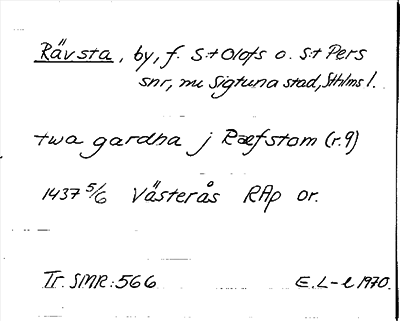 Rävsta, by, f. S:t Olofs o. S:t Pers
snr, nu Sigtuna stad, Sthlms l.
twa gardha j Ræfstom (r. 9)
1437 5/6 Västerås RAp or.
Tr. SMR: 566 E. L-l 1970.